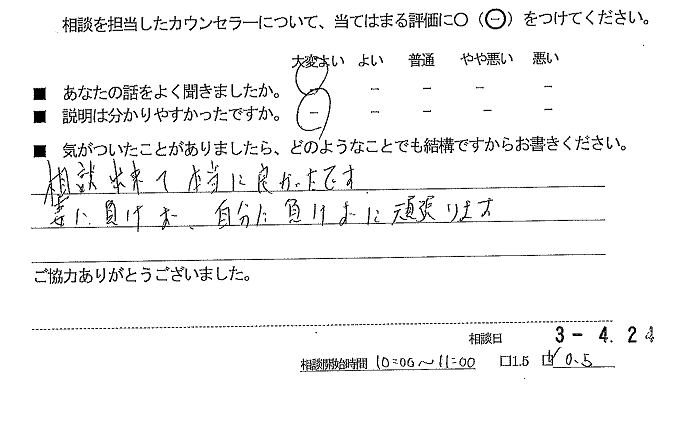 相談を担当したカウンセラーについて、当てはまる評価に○（⊖）をつけてください。
大変よい よい 普通 やや悪い 悪い
■ あなたの話をよく聞きましたか。 － － － － －
■ 説明は分かりやすかったですか。 － － － － －
■ 気がついたことがありましたら、どのようなことでも結構ですからお書きください。
相談出来て本当に良かったです
妻に負けず、自分に負けずに頑張ります
ご協力ありがとうございました。
相談日 3-4.24
相談開始時間 10:00～11:00 □1.5 ☑0.5